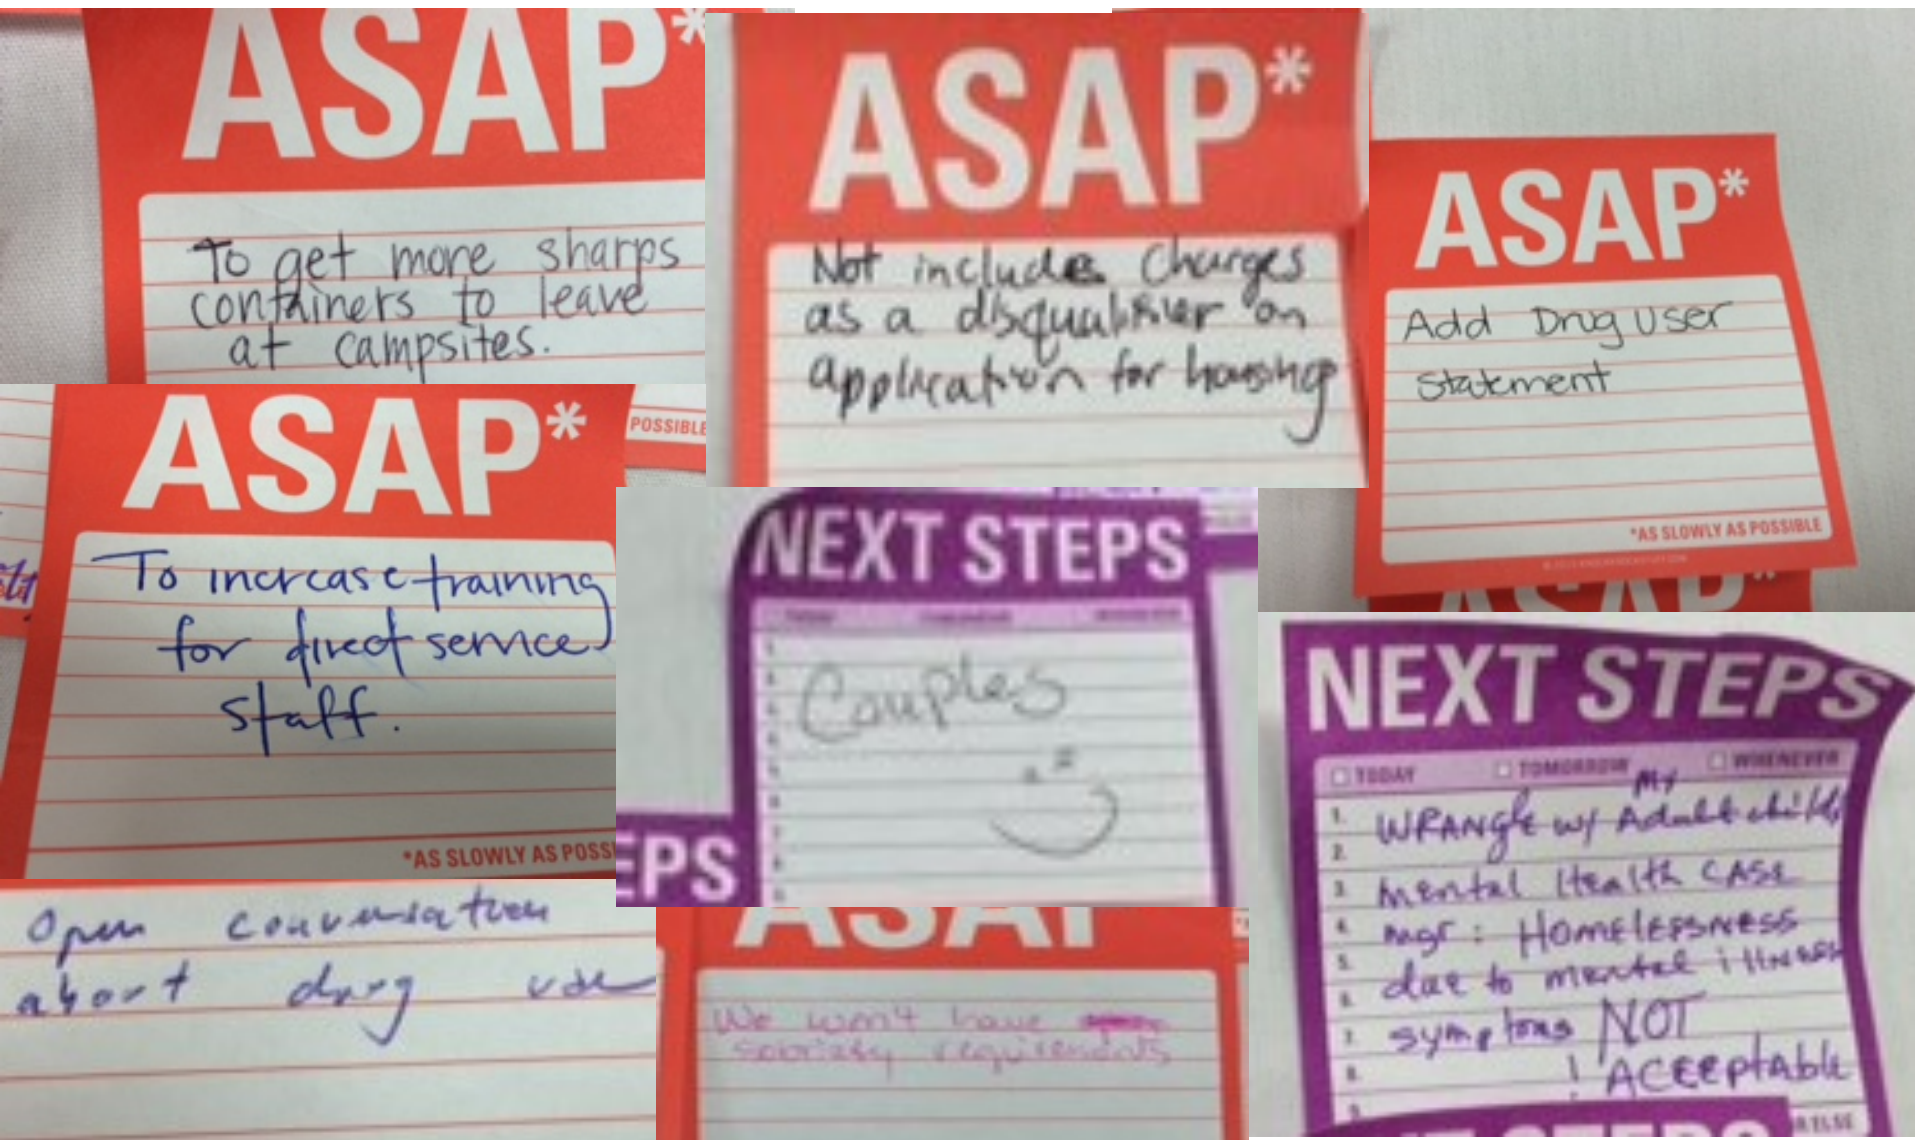 ASAP*
To get more sharps
containers to leave
at campsites.
ASAP*
Not include charges
as a disqualifier on
application for housing
ASAP*
Add Drug User
Statement
*AS SLOWLY AS POSSIBLE
ASAP*
POSSIBLE
ASAP*
To increase training
for direct service
staff.
*AS SLOWLY AS POSSI
NEXT STEPS
Couples
EPS
NEXT STEPS
TODAY TOMORROW WHENEVER
My
1. WRANGLE w/ Adult child's
2.
3. Mental Health CASE
4. mgr: HOMELESSNESS
5. due to mental illness
6.
7. symptoms NOT
8. ! ACEEptable
9.
R ELSE
NEXT STEPS
Open conversation
about drug use
ASAP
We won't have
sobriety requirements